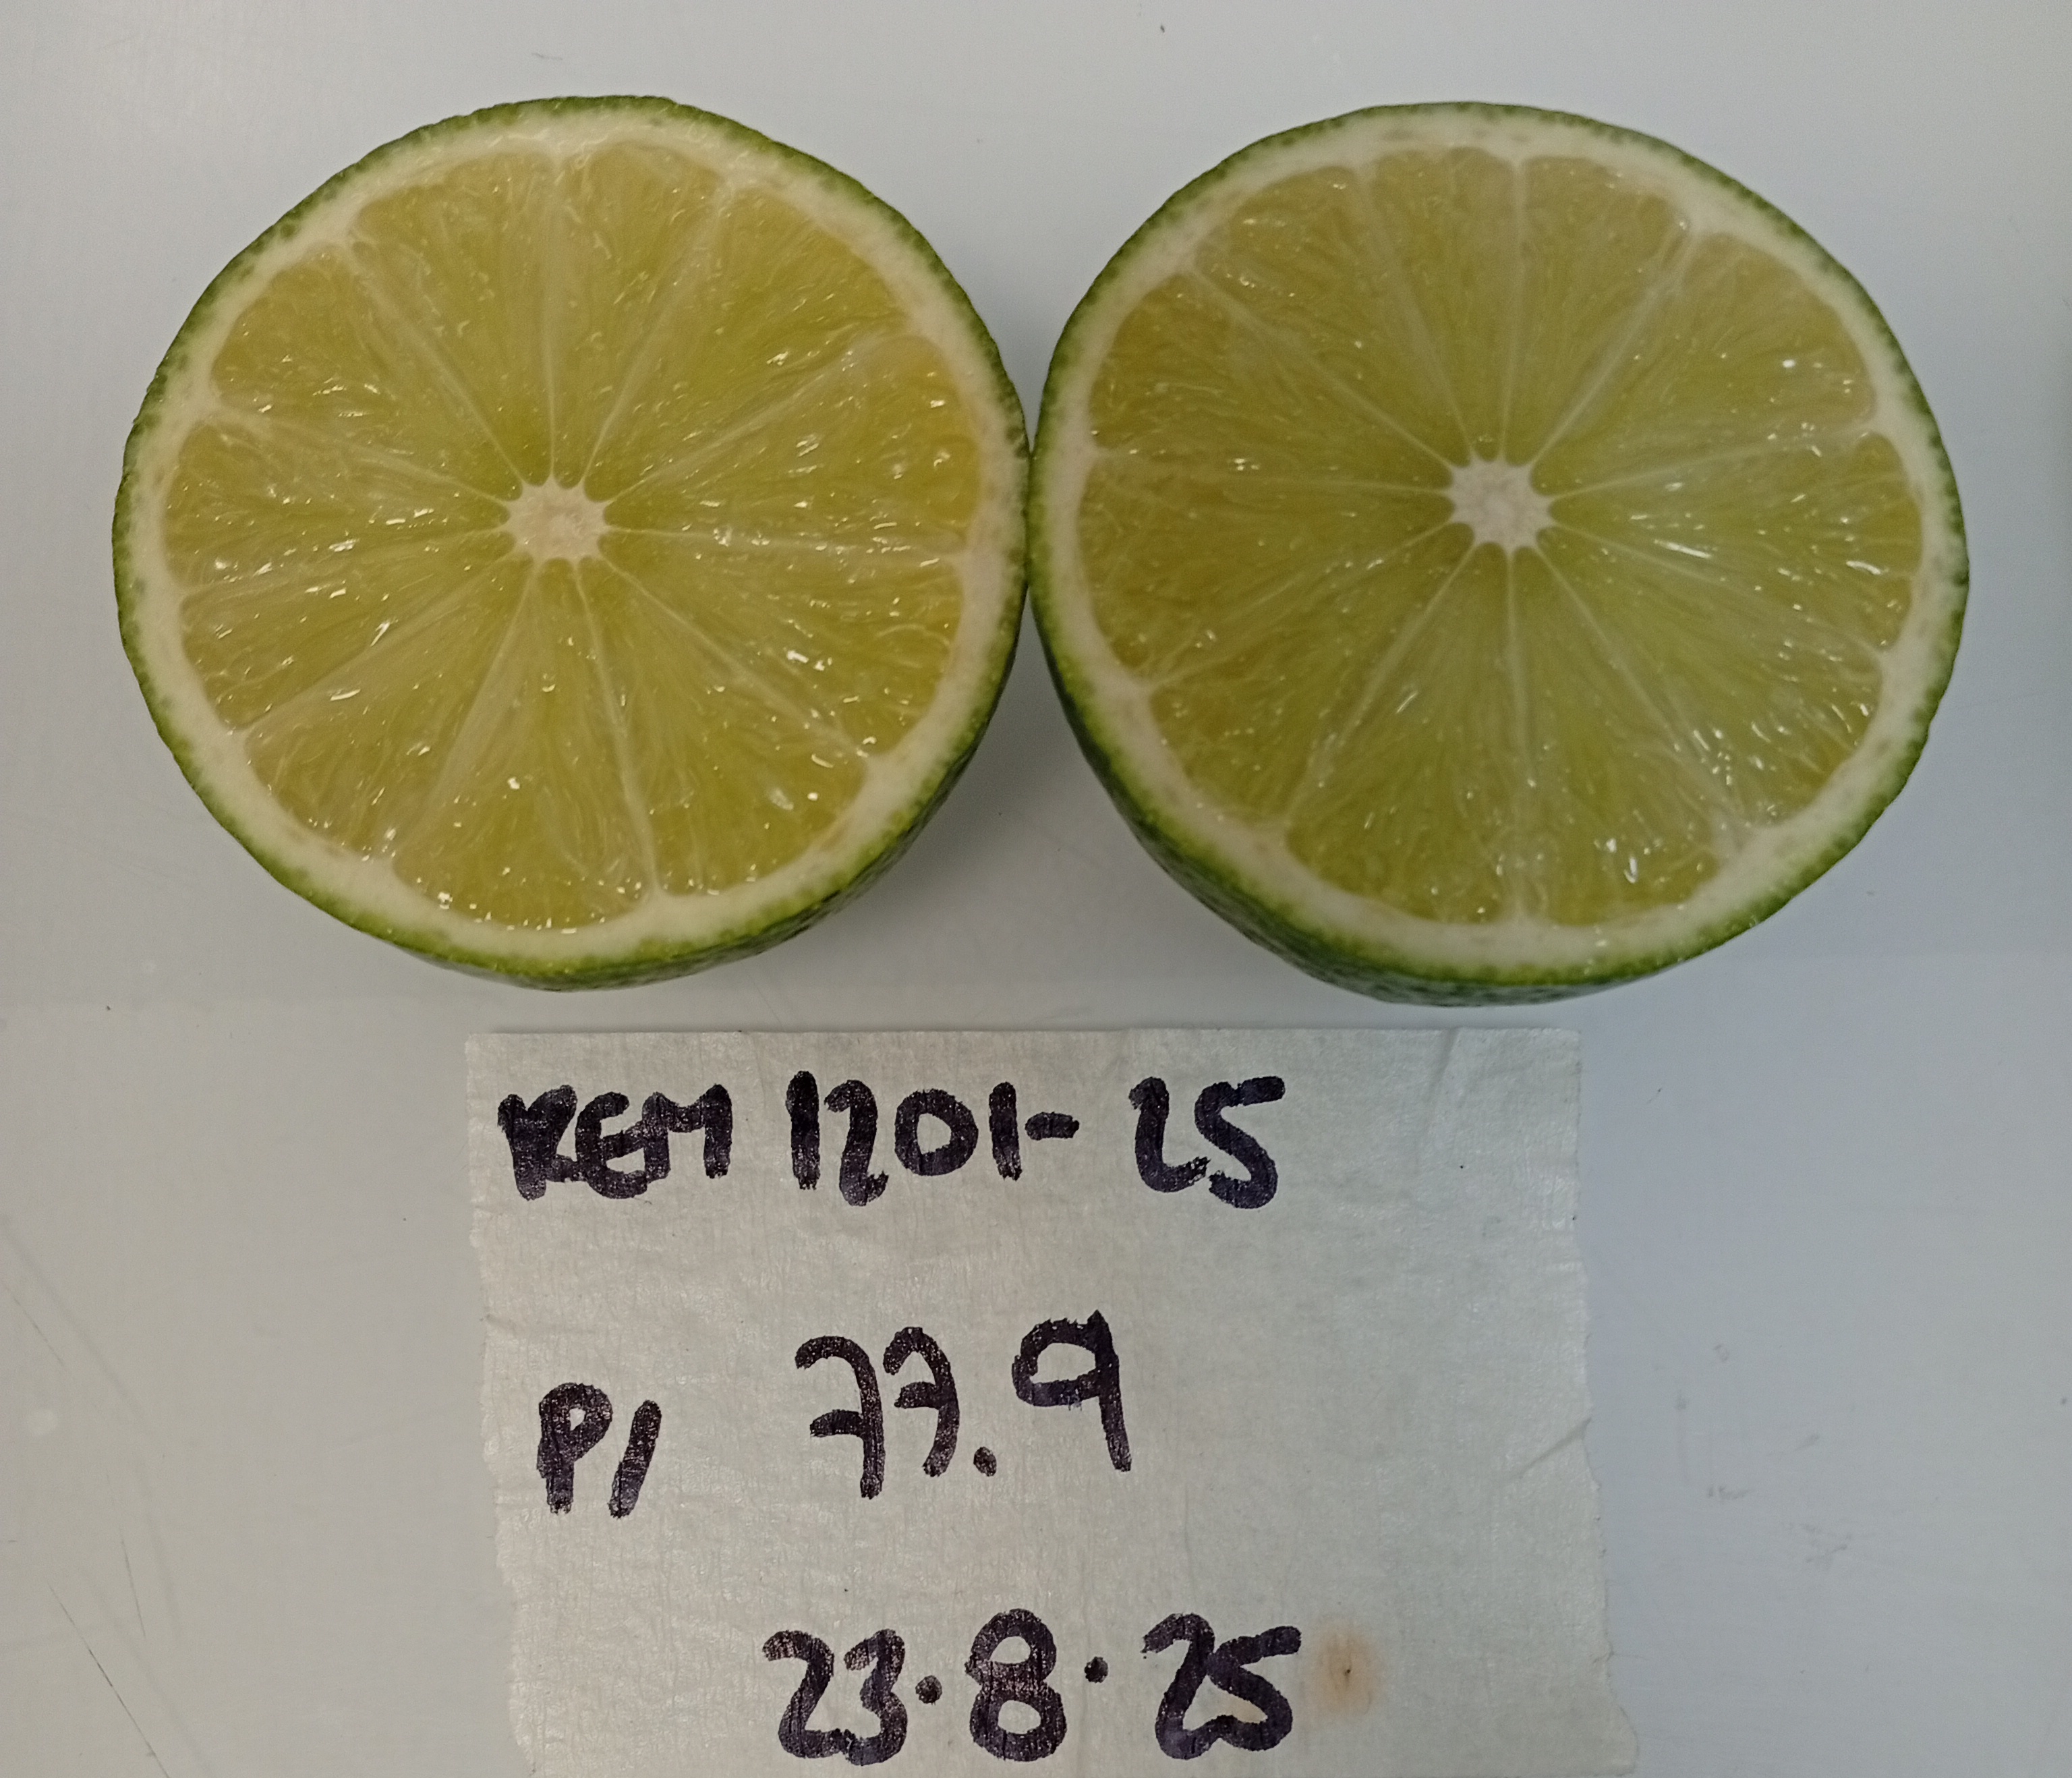 REM 1201-25
P/ 77.9
23.8.25